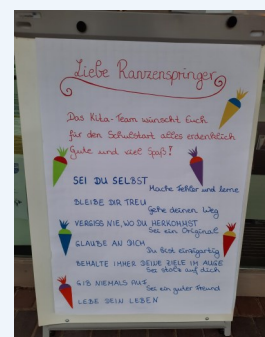 Liebe Ranzenspringer
Das Kita-Team wünscht Euch
für den Schulstart alles erdenklich
Gute und viel Spaß!
SEI DU SELBST
Mache Fehler und lerne
BLEIBE DIR TREU
Gehe deinen Weg
VERGISS NIE, WO DU HERKOMMST
Sei ein Original
GLAUBE AN DICH
Du bist einzigartig
BEHALTE IMMER DEINE ZIELE IM AUGE
Sei stolz auf dich
GIB NIEMALS AUF
Sei ein guter Freund
LEBE DEIN LEBEN